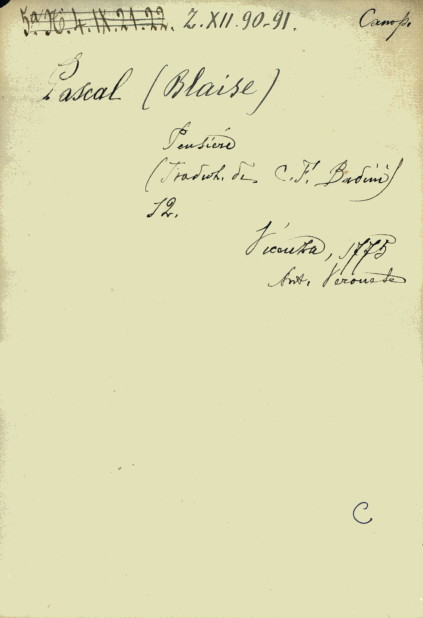 5ª N. 4. IX. 21-22. Z. XII. 90-91. Canop.
Pascal (Blaise)
Pensieri
(Traduh. di C. F. Badini)
12.
Vicenza, 1775
Ant. Veronese
C